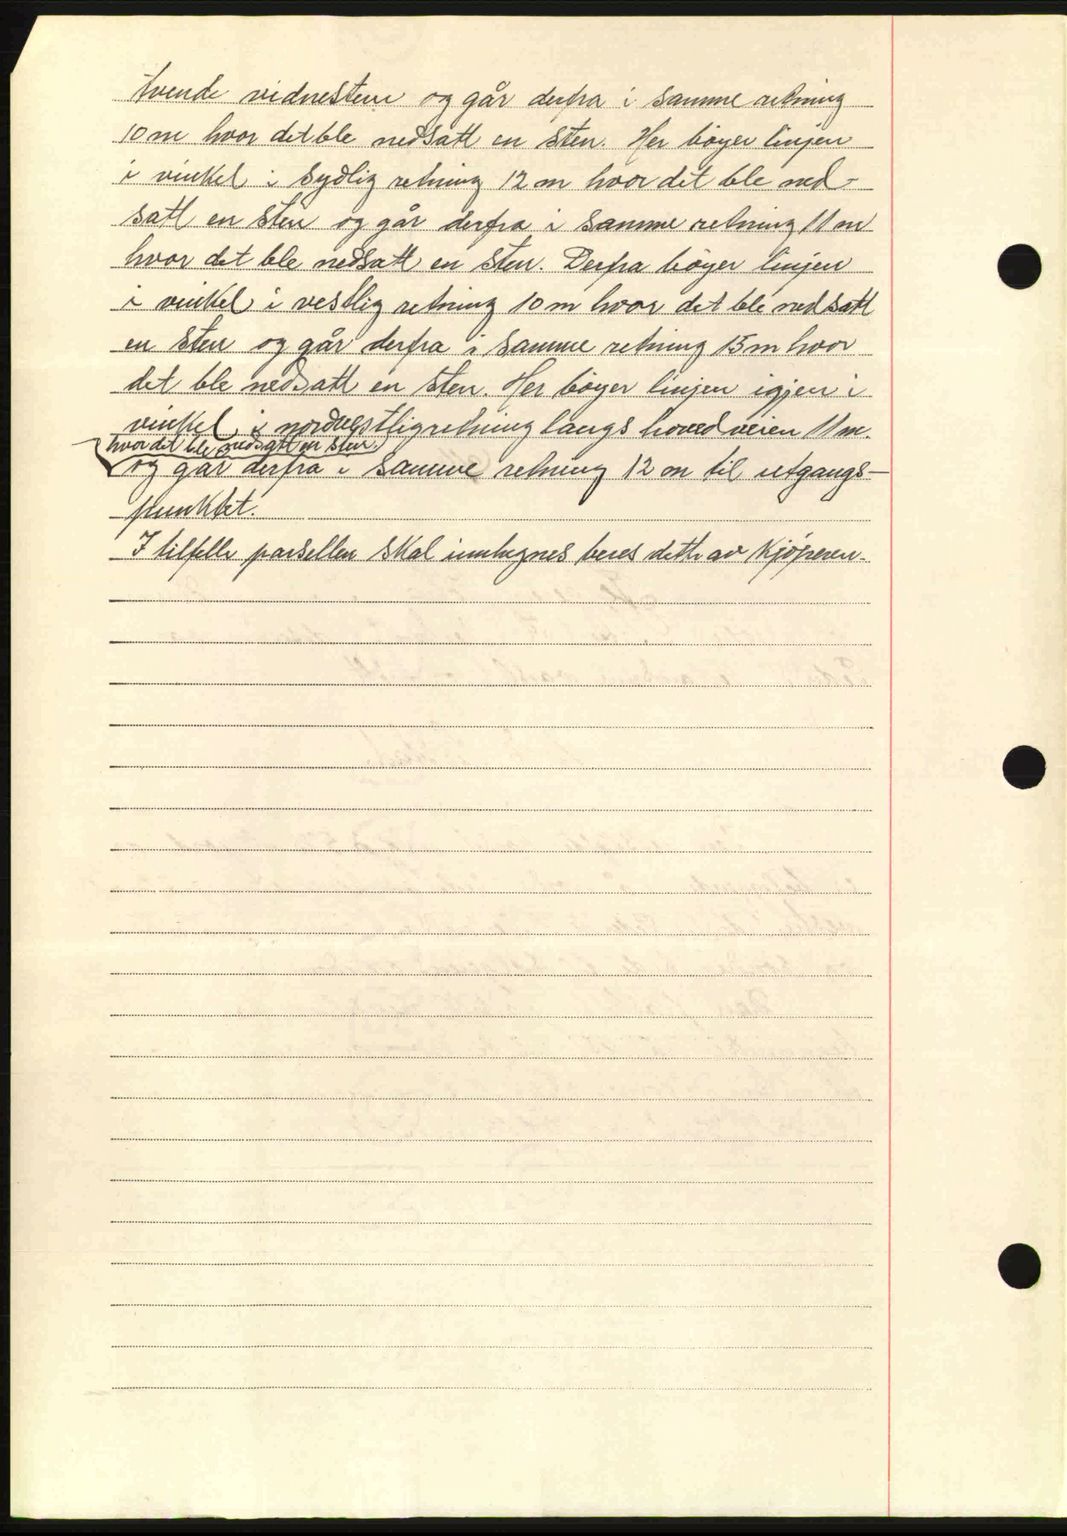 tvende vidnestene og går derfra i samme retning
10 m hvor det ble nedsatt en sten. Her bøyer linjen
i vinkel i sydlig retning 12 m hvor det ble ned-
satt en sten og går derfra i samme retning 11 m
hvor det ble nedsatt en sten. Derfra bøyer linjen
i vinkel i vestlig retning 10 m hvor det ble nedsatt
en sten og går derfra i samme retning 15 m hvor
det ble nedsatt en sten. Her bøyer linjen igjen i
vinkel i nordvestlig retning langs hovedveien 11 m.
hvor det ble nedsatt en sten.
og går derfra i samme retning 12 m til utgangs-
punktet.
I tilfelle parsellen skal innhegnes beres dette av kjøperen.